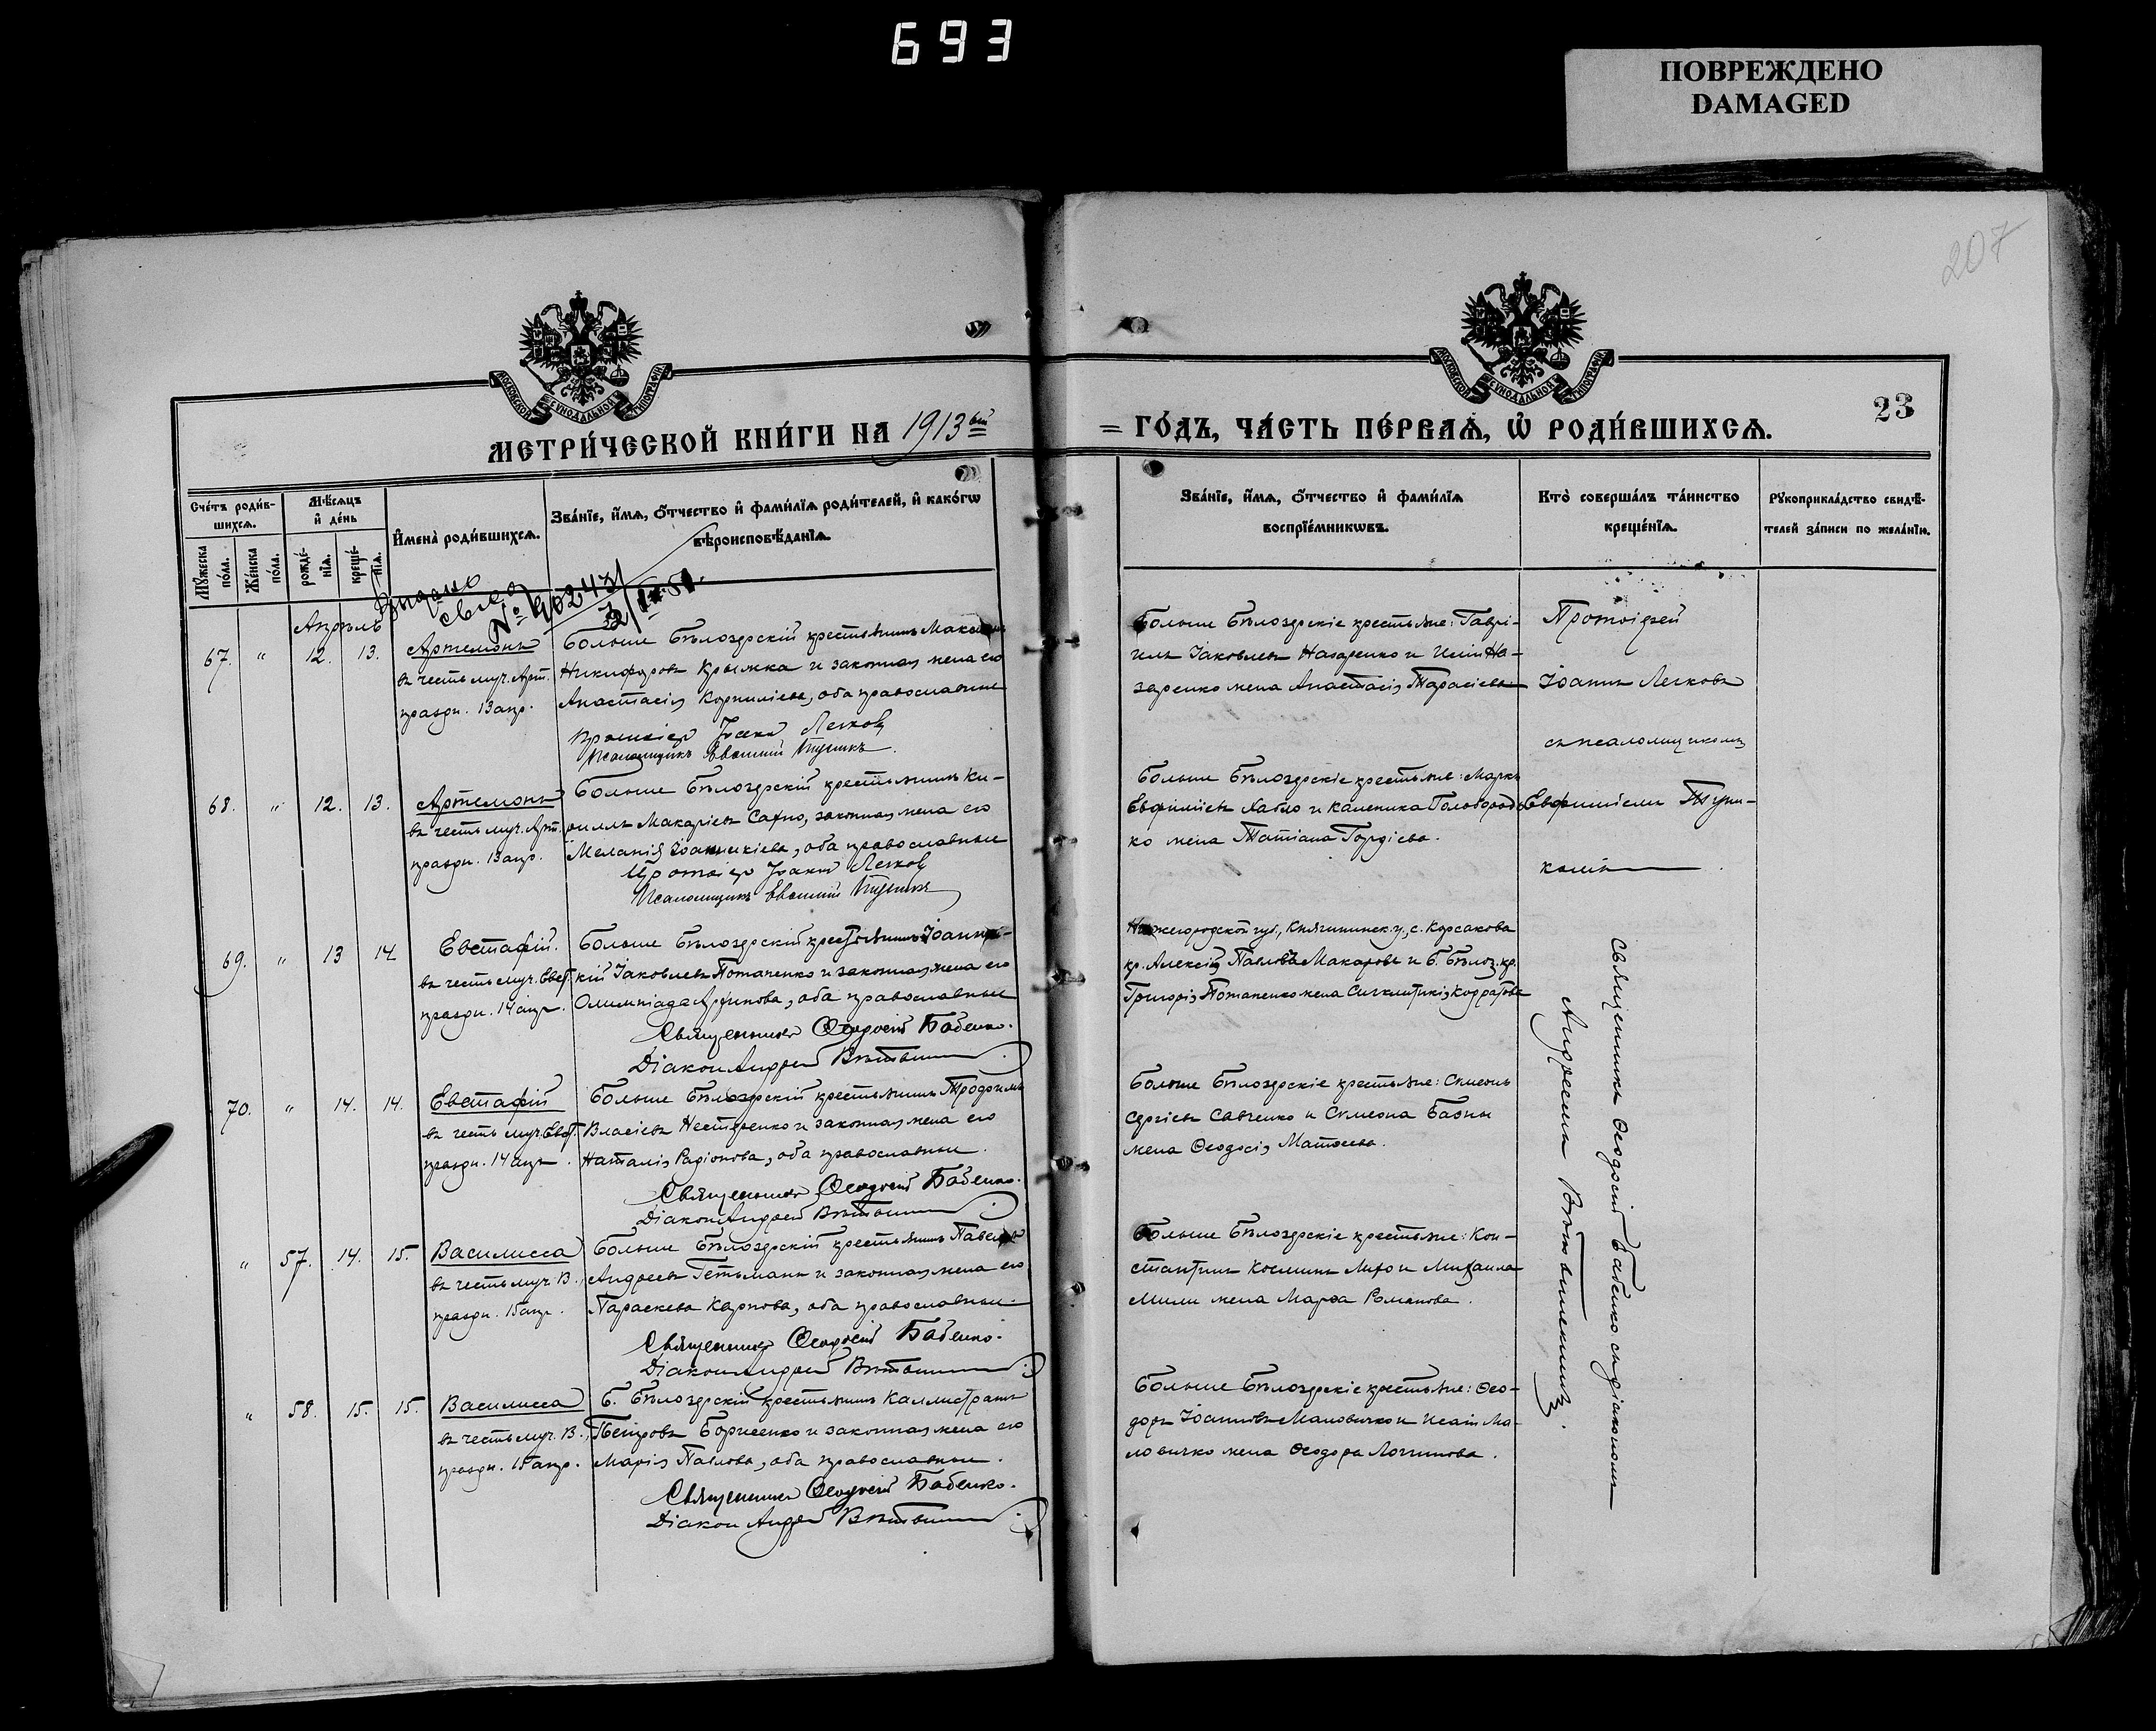 693
ПОВРЕЖДЕНО
DAMAGED
207
МОСКОВСКОЙ СѴНОДАЛЬНОЙ ТИПОГРАФІИ
МОСКОВСКОЙ СѴНОДАЛЬНОЙ ТИПОГРАФІИ
МЕТРИ́ЧЕСКОЙ КНИ́ГИ НА 1913ый
= ГО́ДЪ, ЧА́СТЬ ПЕ́РВАѦ, Ѡ҆ РОДИ́ВШИХСѦ.
23
Сче́тъ роди́в-
шихсѧ.
Мѣ́сѧцъ
и҆ де́нь
И҆мена̀ роди́вшихсѧ.
Зва́нїе, и҆́мѧ, ѻ҆́тчество и҆ фами́лїѧ роди́телей, и҆ како́гѡ
вѣроисповѣ́данїѧ.
Мꙋ́жеска
по́ла.
Же́нска
по́ла.
рожде́-
нїѧ.
креще́-
нїѧ.
Зва́нїе, и҆́мѧ, ѻ҆́тчество и҆ фами́лїѧ
воспрїе́мникѡвъ.
Кто̀ соверша́лъ та́инство
креще́нїѧ.
Рꙋкоприкла́дство свидѣ́-
телей за́писи по жела́нїю.
Выдано
№
Апрѣль
67. " 12. 13. Артемонъ
въ честь муч. Арт.
праздн. 13 апр.
Больше Бѣлозерскій крестьянинъ Максимъ
Никифоровъ Крыжка и законная жена его
Анастасія Корниліева, оба православные
Протоіер Іоанн Легков
Псаломщикъ Евфимій Тупикъ.
Больше Бѣлозерскіе крестьяне: Гаврі-
илъ Іаковлевъ Назаренко и Иліи На-
заренко жена Анастасія Тарасіева.
Протоіерей
Іоаннъ Легковъ
съ псаломщикомъ
Евфиміемъ Тупи-
комъ
68. " 12. 13. Артемонъ
въ честь муч. Арт.
праздн. 13 апр.
Больше Бѣлозерскій крестьянинъ Ки-
риллъ Макаріевъ Сахно, законная жена его
Меланія Іоанникіева, оба православные
Протоіер Іоанн Легков
Псаломщикъ Евфимій Тупикъ
Больше Бѣлозерскіе крестьяне: Маркъ
Евфиміевъ Хабло и Каленика Голобород-
ко жена Татіана Гордіева.
69. " 13 14 Евстафій.
въ честь муч. Евст.
праздн. 14 апр.
Больше Бѣлозерскій крестьянинъ Іоанни-
кій Іаковлевъ Потапенко и законная жена его
Олимпіада, оба православные
Священник Ѳеодосій Бабенко.
Діакон Андрей
Нижегородской губ., Княгининск. у., с. Корсакова
кр. Алексій Павловъ Макаровъ и Б. Бѣлоз. кр.
Григорія Потапенко жена Сигклитикія Кодратова
Священникъ Ѳеодосій Бабенко съ діакономъ
70. " 14. 14. Евстафій
въ честь муч. Евст.
праздн. 14 апр.
Больше Бѣлозерскій крестьянинъ Трофимъ
Власіевъ Нестеренко и законная жена его
Наталія Радіонова, оба православные.
Священник Ѳеодосій Бабенко.
Діакон Андрей
Больше Бѣлозерскіе крестьяне: Симеонъ
Сергіевъ Савченко и Симеона
жена Ѳеодосія Матѳеева.
" 57. 14. 15. Василисса
въ честь муч. В.
праздн. 15 апр.
Больше Бѣлозерскій крестьянинъ Павелъ
Андреевъ Гетьманъ и законная жена его
Параскева Карпова, оба православные.
Священник Ѳеодосій Бабенко.
Діакон Андрей
Больше Бѣлозерскіе крестьяне: Кон-
стантинъ Косминъ и Михаила
жена Марѳа Романова.
" 58. 15. 15. Василисса
въ честь муч. В.
праздн. 15 апр.
Б. Бѣлозерскій крестьянинъ Каллистратъ
Петровъ Борисенко и законная жена его
Марія Павлова, оба православные.
Священник Ѳеодосій Бабенко.
Діакон Андрей
Больше Бѣлозерскіе крестьяне: Ѳео-
доръ Іоанновъ Маловичко и Исаіи Ма-
ловичко жена Ѳеодора Логгинова.